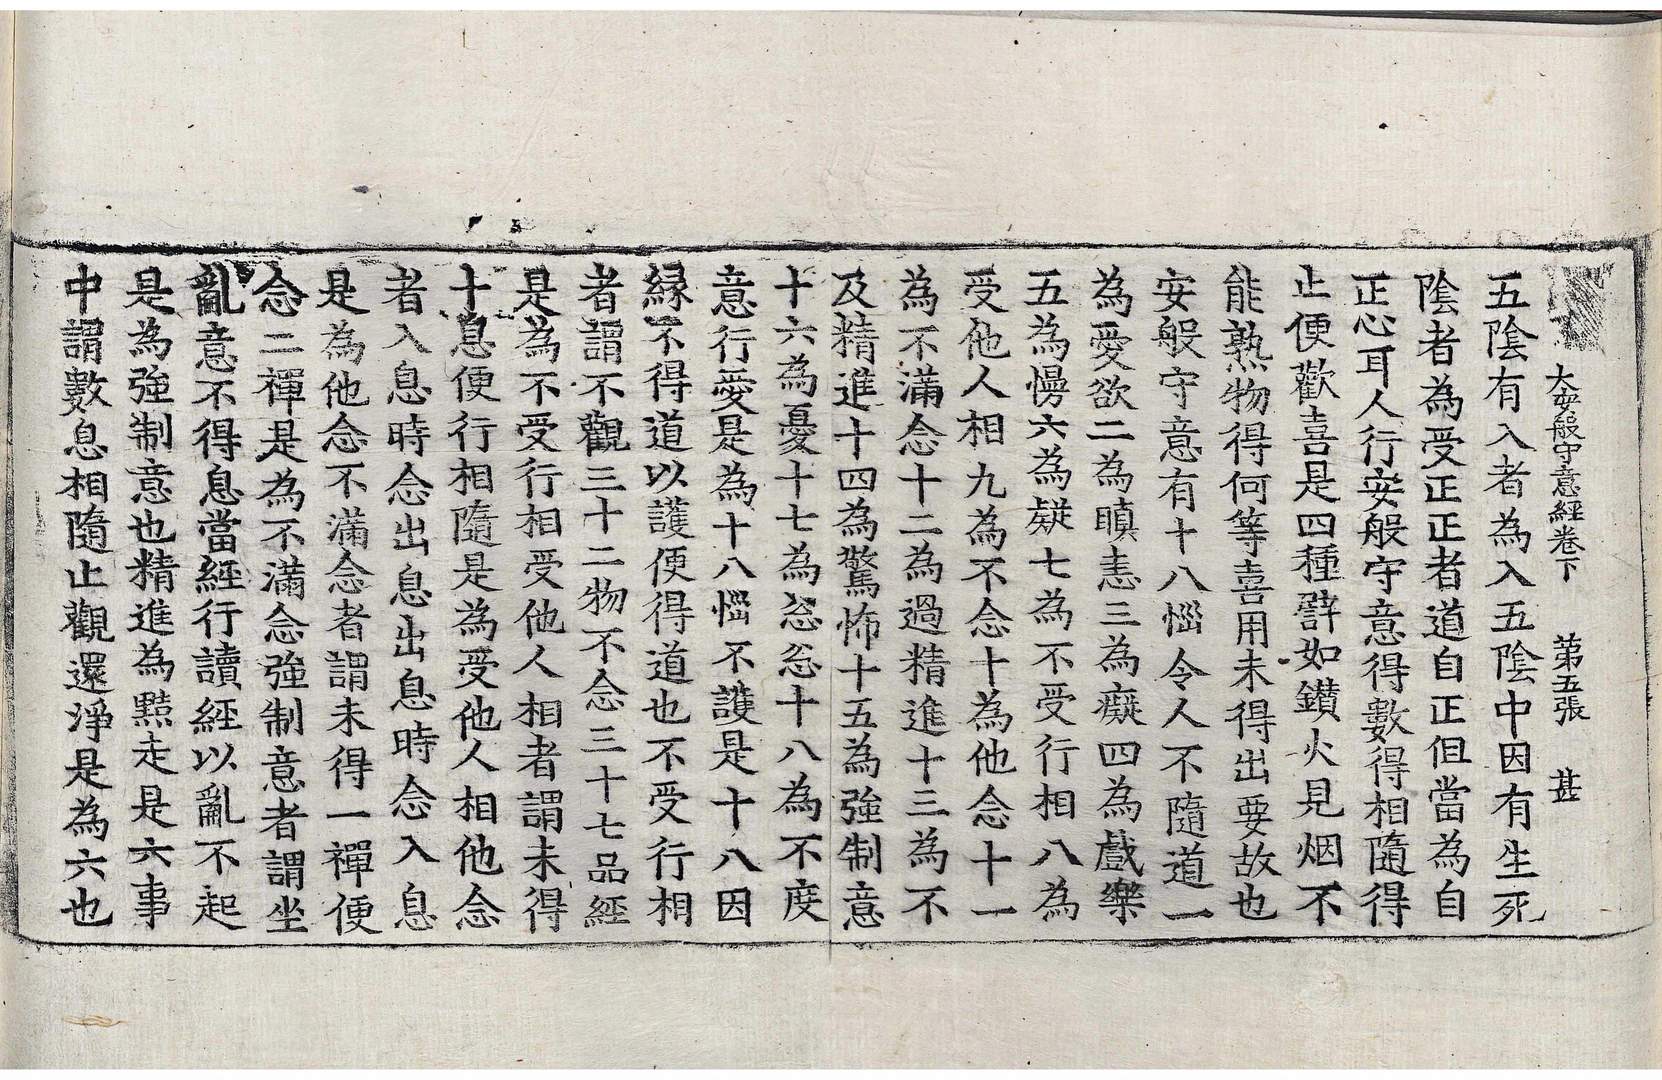 大安般守意經卷下 第五張 甚
五陰有入者為入五陰中因有生死
陰者為受正正者道自正但當為自
正心耳人行安般守意得數得相隨得
止便歡喜是四種譬如鑚火見烟不
能熟物得何等喜用未得出要故也
安般守意有十八惱令人不隨道一
為愛欲二為瞋恚三為癡四為戲樂
五為慢六為疑七為不受行相八為
受他人相九為不念十為他念十一
為不滿念十二為過精進十三為不
及精進十四為驚怖十五為強制意
十六為憂十七為忩忩十八為不度
意行愛是為十八惱不護是十八因
緣不得道以護便得道也不受行相
者謂不觀三十二物不念三十七品經
是為不受行相受他人相者謂未得
十息便行相隨是為受他人相他念
者入息時念出息出息時念入息
是為他念不滿念者謂未得一禪便
念二禪是為不滿念強制意者謂坐
亂意不得息當經行讀經以亂不起
是為強制意也精進為黠走是六事
中謂數息相隨止觀還淨是為六也